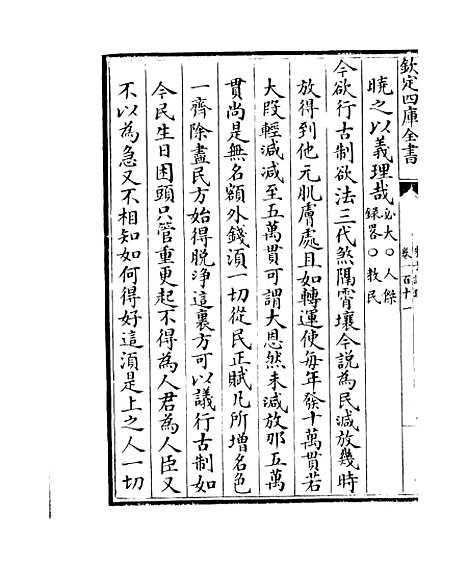 欽定四庫全書
卷一百十一
曉之以義理哉必大○人傑
錄畧○教民
今欲行古制欲法三代煞隔霄壤今說為民減放幾時
放得到他元肌膚處且如轉運使每年發十萬貫若
大段輕減減至五萬貫可謂大恩然未減放那五萬
貫尚是無名額外錢湏一切從民正賦凡所增名色
一齊除盡民方始得脫淨這裏方可以議行古制如
今民生日困頭只管重更起不得為人君為人臣又
不以為急又不相知如何得好這湏是上之人一切